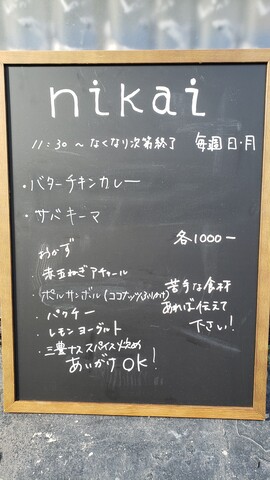 nikai
11:30〜なくなり次第終了 毎週日・月
・バターチキンカレー
・サバキーマ
各1000ー
おかず
赤玉ねぎアチャール
ポルサンボル(ココナッツふりかけ)
・パクチー
・レモンヨーグルト
・三豊ナススパイス炒め
あいがけOK!
苦手な食材
あれば伝えて
下さい!